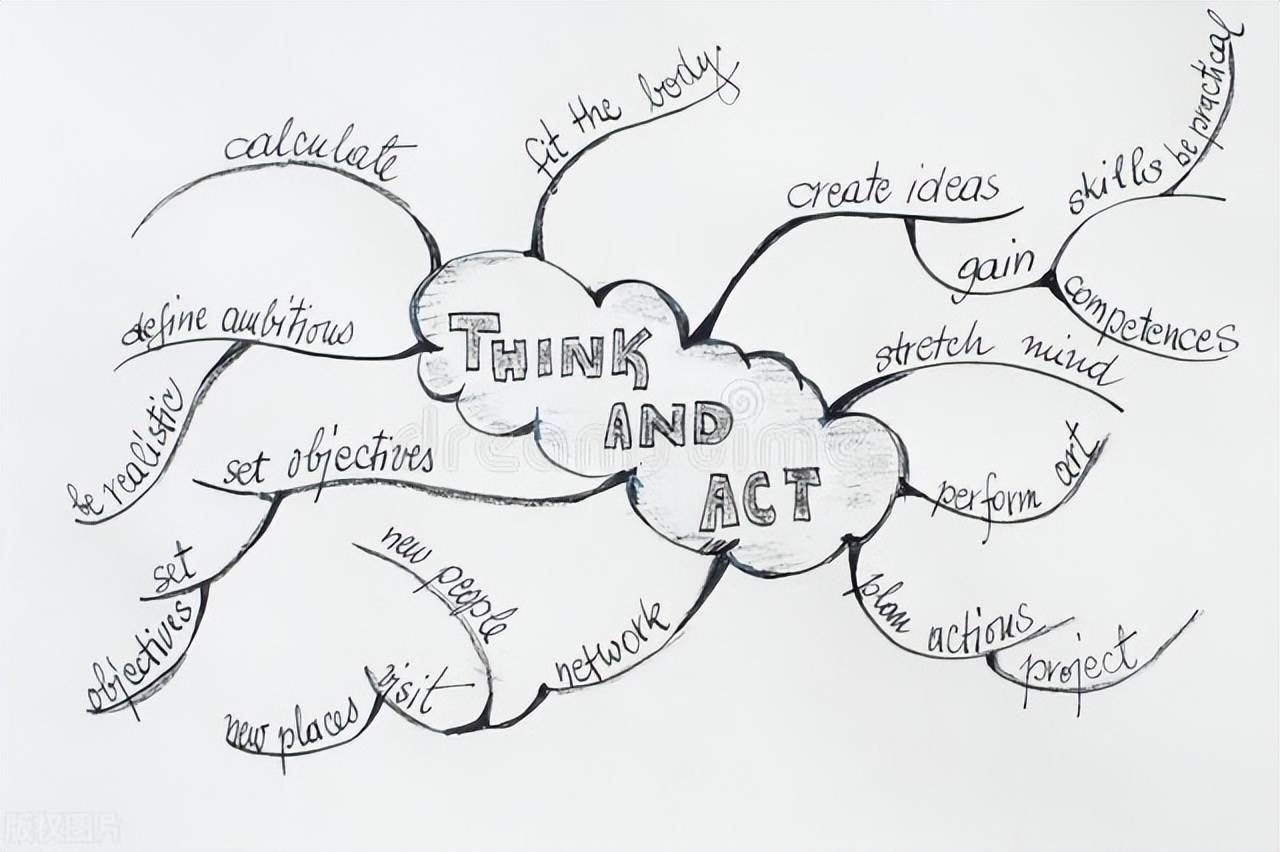 calculate
fit the body
create ideas
gain
skills
be practical
competences
define ambitious
be realistic
THINK
AND
ACT
stretch mind
set objectives
set
objectives
perform art
plan actions
project
network
new people
visit
new places
dreamstime
版权图片